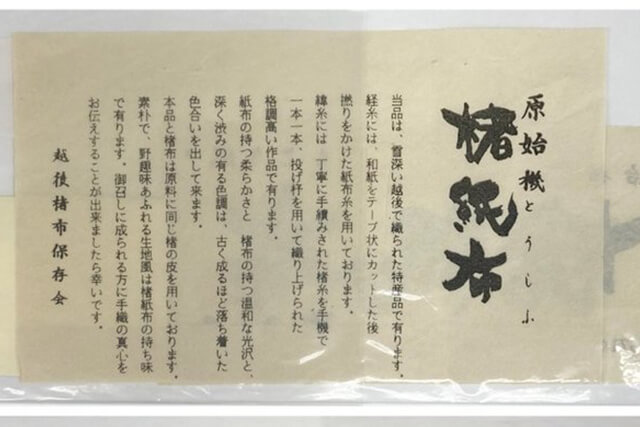 原始機とうしふ
楮紙布
当品は、雪深い越後で織られた特産品で有ります。
経糸には、和紙をテープ状にカットした後
撚りをかけた紙布糸を用いております。
緯糸には、丁寧に手績みされた楮糸を手機で
一本一本、投げ杼を用いて織り上げられた
格調高い作品で有ります。
紙布の持つ柔らかさと 楮布の持つ温和な光沢と、
深く渋みの有る色調は、古く成るほど落ち着いた
色合いを出して来ます。
本品と楮布は原料に同じ楮の皮を用いております。
素朴で、野趣味あふれる生地風は楮紙布の持ち味
で有ります。御召しに成られる方に手織の真心を
お伝えすることが出来ましたら幸いです。
越後楮布保存会